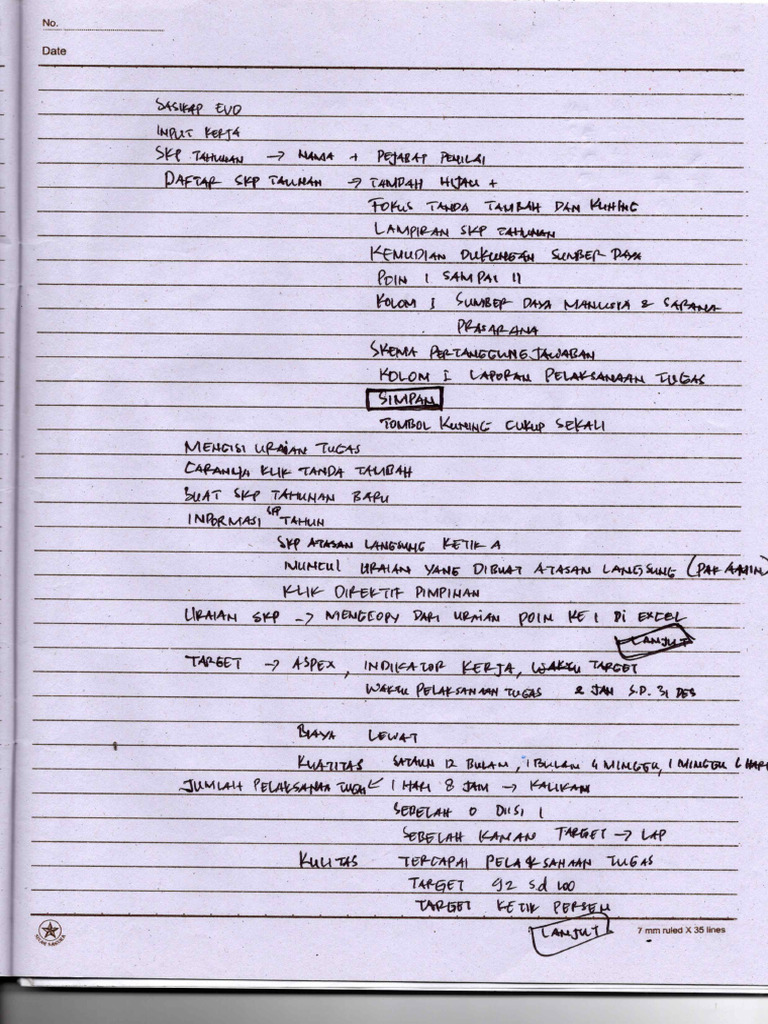 No.
Date
SASIKAP EVO
INPUT KERJA
SKP TAHUNAN → NAMA + PEJABAT PENILAI
DAFTAR SKP TAUNAN → TAMBAH HIJAU +
FOKUS TANDA TAMBAH DAN KUNING
LAMPIRAN SKP TAHUNAN
KEMUDIAN DUKUNGAN SUMBER DAYA
POIN 1 SAMPAI 11
KOLOM 1 SUMBER DAYA MANUSIA & SARANA
PRASARANA
SKEMA PERTANGGUNG JAWABAN
KOLOM 1 LAPORAN PELAKSANAAN TUGAS
SIMPAN
TOMBOL KUNING CUKUP SEKALI
MENGISI URAIAN TUGAS
CARANYA KLIK TANDA TAMBAH
BUAT SKP TAHUNAN BARU
INFORMASI SKP TAHUN
SKP ATASAN LANGSUNG KETIK A
MUNCUL URAIAN YANG DIBUAT ATASAN LANGSUNG (PAK AMIN)
KLIK DIREKTIF PIMPINAN
URAIAN SKP → MENGCOPY DARI URAIAN POIN KE 1 DI EXCEL
LANJUT
TARGET → ASPEX, INDIKATOR KERJA, WAKTU TARGET
WAKTU PELAKSANAAN TUGAS 2 JAN S.D. 31 DES
BIAYA LEWAT
KUATITAS SATAUN 12 BULAN, 1 BULAN 4 MINGGU, 1 MINGGU 6 HARI
JUMLAH PELAKSANAA TUGAS 1 HARI 8 JAM → KALIKAN
SEBELAH 0 DIISI 1
SEBELAH KANAN TARGET → LAP
KULITAS TERCAPAI PELAKSANAAN TUGAS
TARGET 92 sd 100
TARGET KETIK PERSEN
LANJUT
7 mm ruled X 35 lines